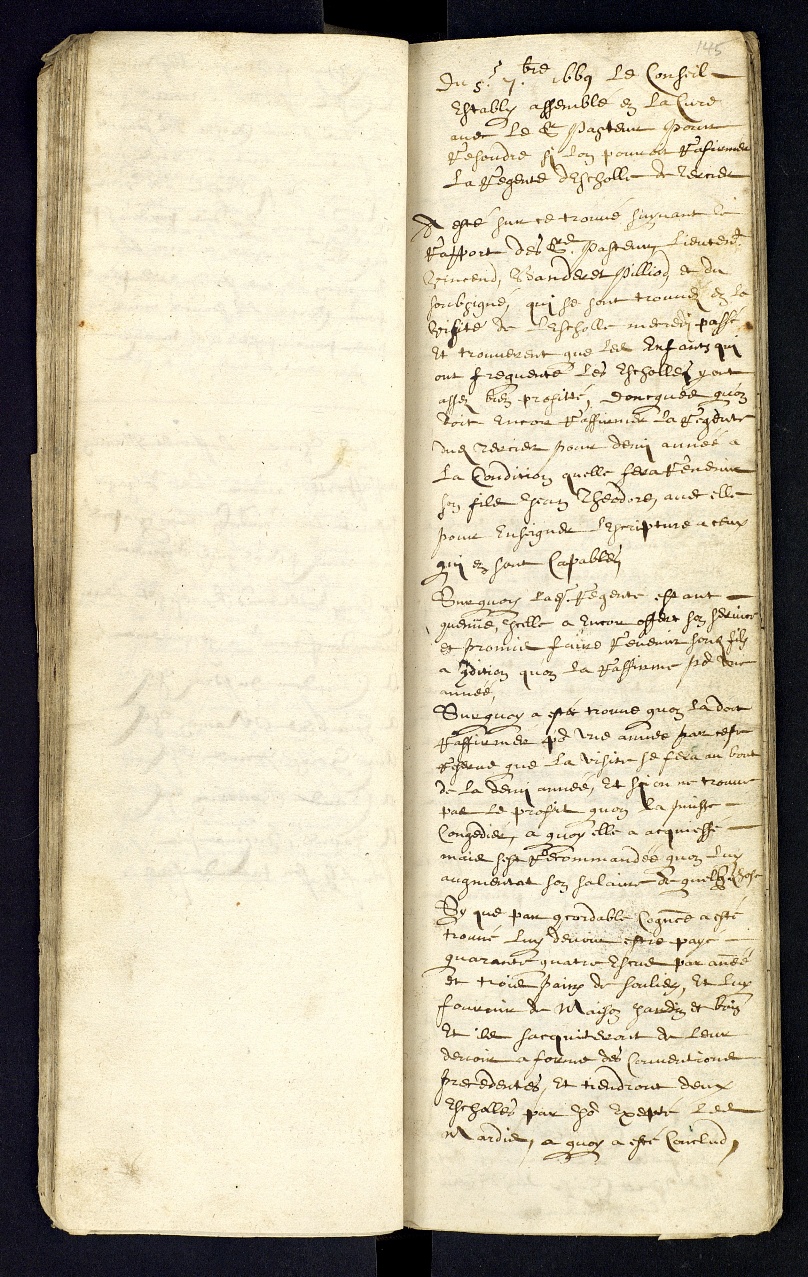 145
Du 5.e 7.bre 1669 Le Conseil
Estably assemblé en La Cure
avec Le Sr Pasteur pour
Resoudre si Lon pouvoit Rafirmer
La Regente dEscholle de Vercier
A esté sur ce trouvé suyvant le
Rapport des Srs Pasteur, Lieutent
Vincend, Banderet Pilliod, et du
soubsigné, qui se sont trouvés en la
Visite de LEscholle mecredi passé
Et trouverent que Les Enfants qui
ont frequenté Les Escholles y ont
assez bien profitté, doncques quon
doit Encor Raffirmer La Regente
de Vercier pour demi année a
La Condition quelle fera Revenir
son fils Jean Theodore, avec elle
pour Enseigner LEscripture a ceux
qui en sont Capables
Surquoy Lad. Regente estant
quenüe, Icelle a Encor offert son service
et promis faire Revenir sond fils
a 9dition quon La Raffirme pd une
année,
Surquoy a esté trouvé quon La doit
Raffirmer pd une année par ceste
Reserve que La visite se fera au bout
de La demi année, Et si on ne trouve
pas Le profit quon La puisse
Congedier, a quoy elle a acquiessé
mais sest Recommandée quon Luy
augmentat son salaire de quelq chose
Sy que par 9cordable Cognce a esté
trouvé Luy devoir estre payé
quarante quatre Escus par année
et trois pairs de souliers, Et Luy
fournir de Maison Jardin et bois
Et ils sacquiteront de Leur
devoir a forme des Conventions
precedentes, Et tiendront deux
Escholles par jour Exepté Les
Mardis, a quoy a esté Conclud,